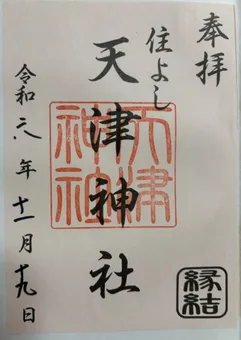 奉拝
住よし
天津神社
天津
神社
令和六年十一月十九日
縁結